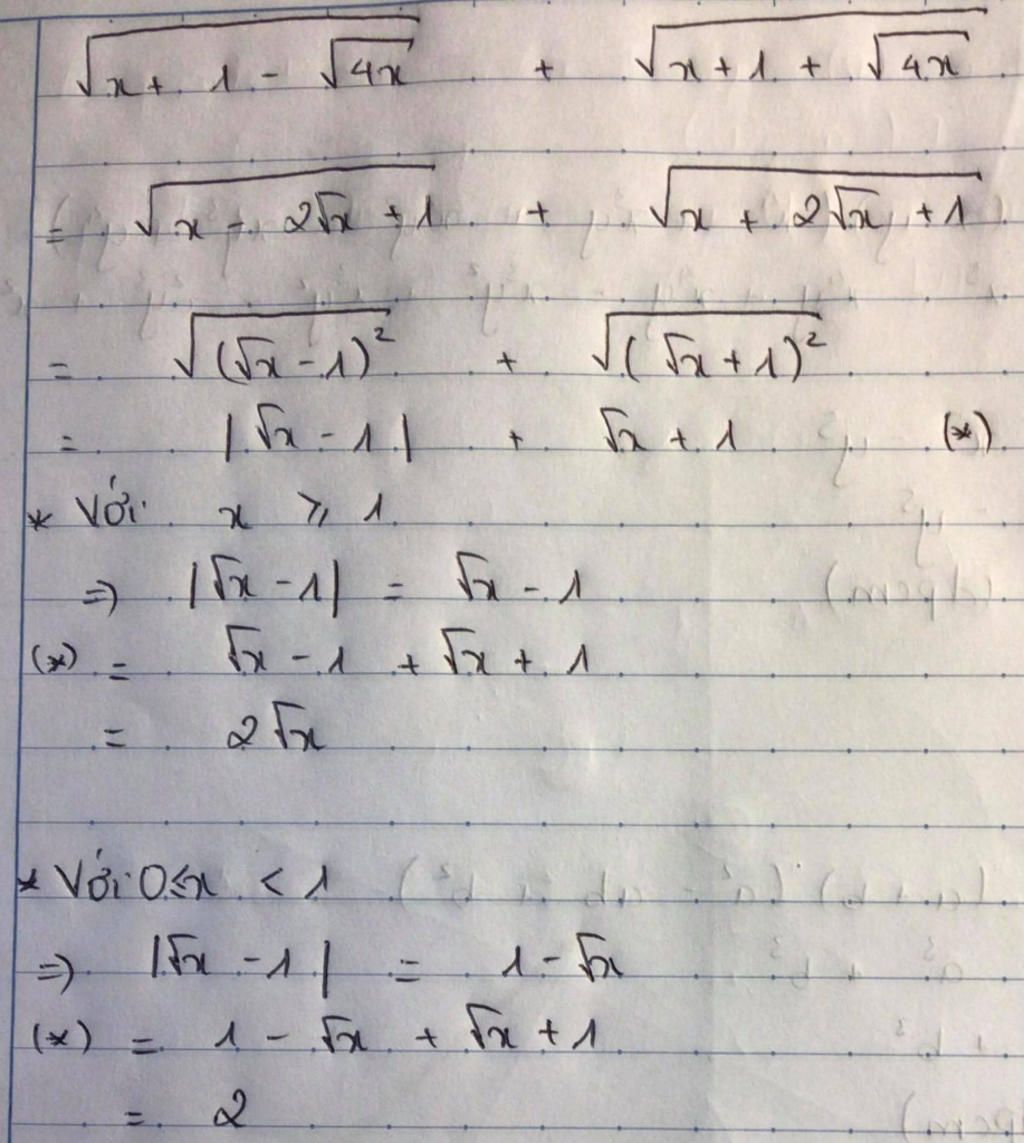 √(x + 1 - √(4x)) + √(x + 1 + √(4x))
= √(x - 2√x + 1) + √(x + 2√x + 1)
= √((√x - 1)²) + √((√x + 1)²)
= |√x - 1| + √x + 1 (*)
* Với x ⩾ 1
=> |√x - 1| = √x - 1
(*) = √x - 1 + √x + 1
= 2√x
* Với 0 ≤ x < 1
=> |√x - 1| = 1 - √x
(*) = 1 - √x + √x + 1
= 2